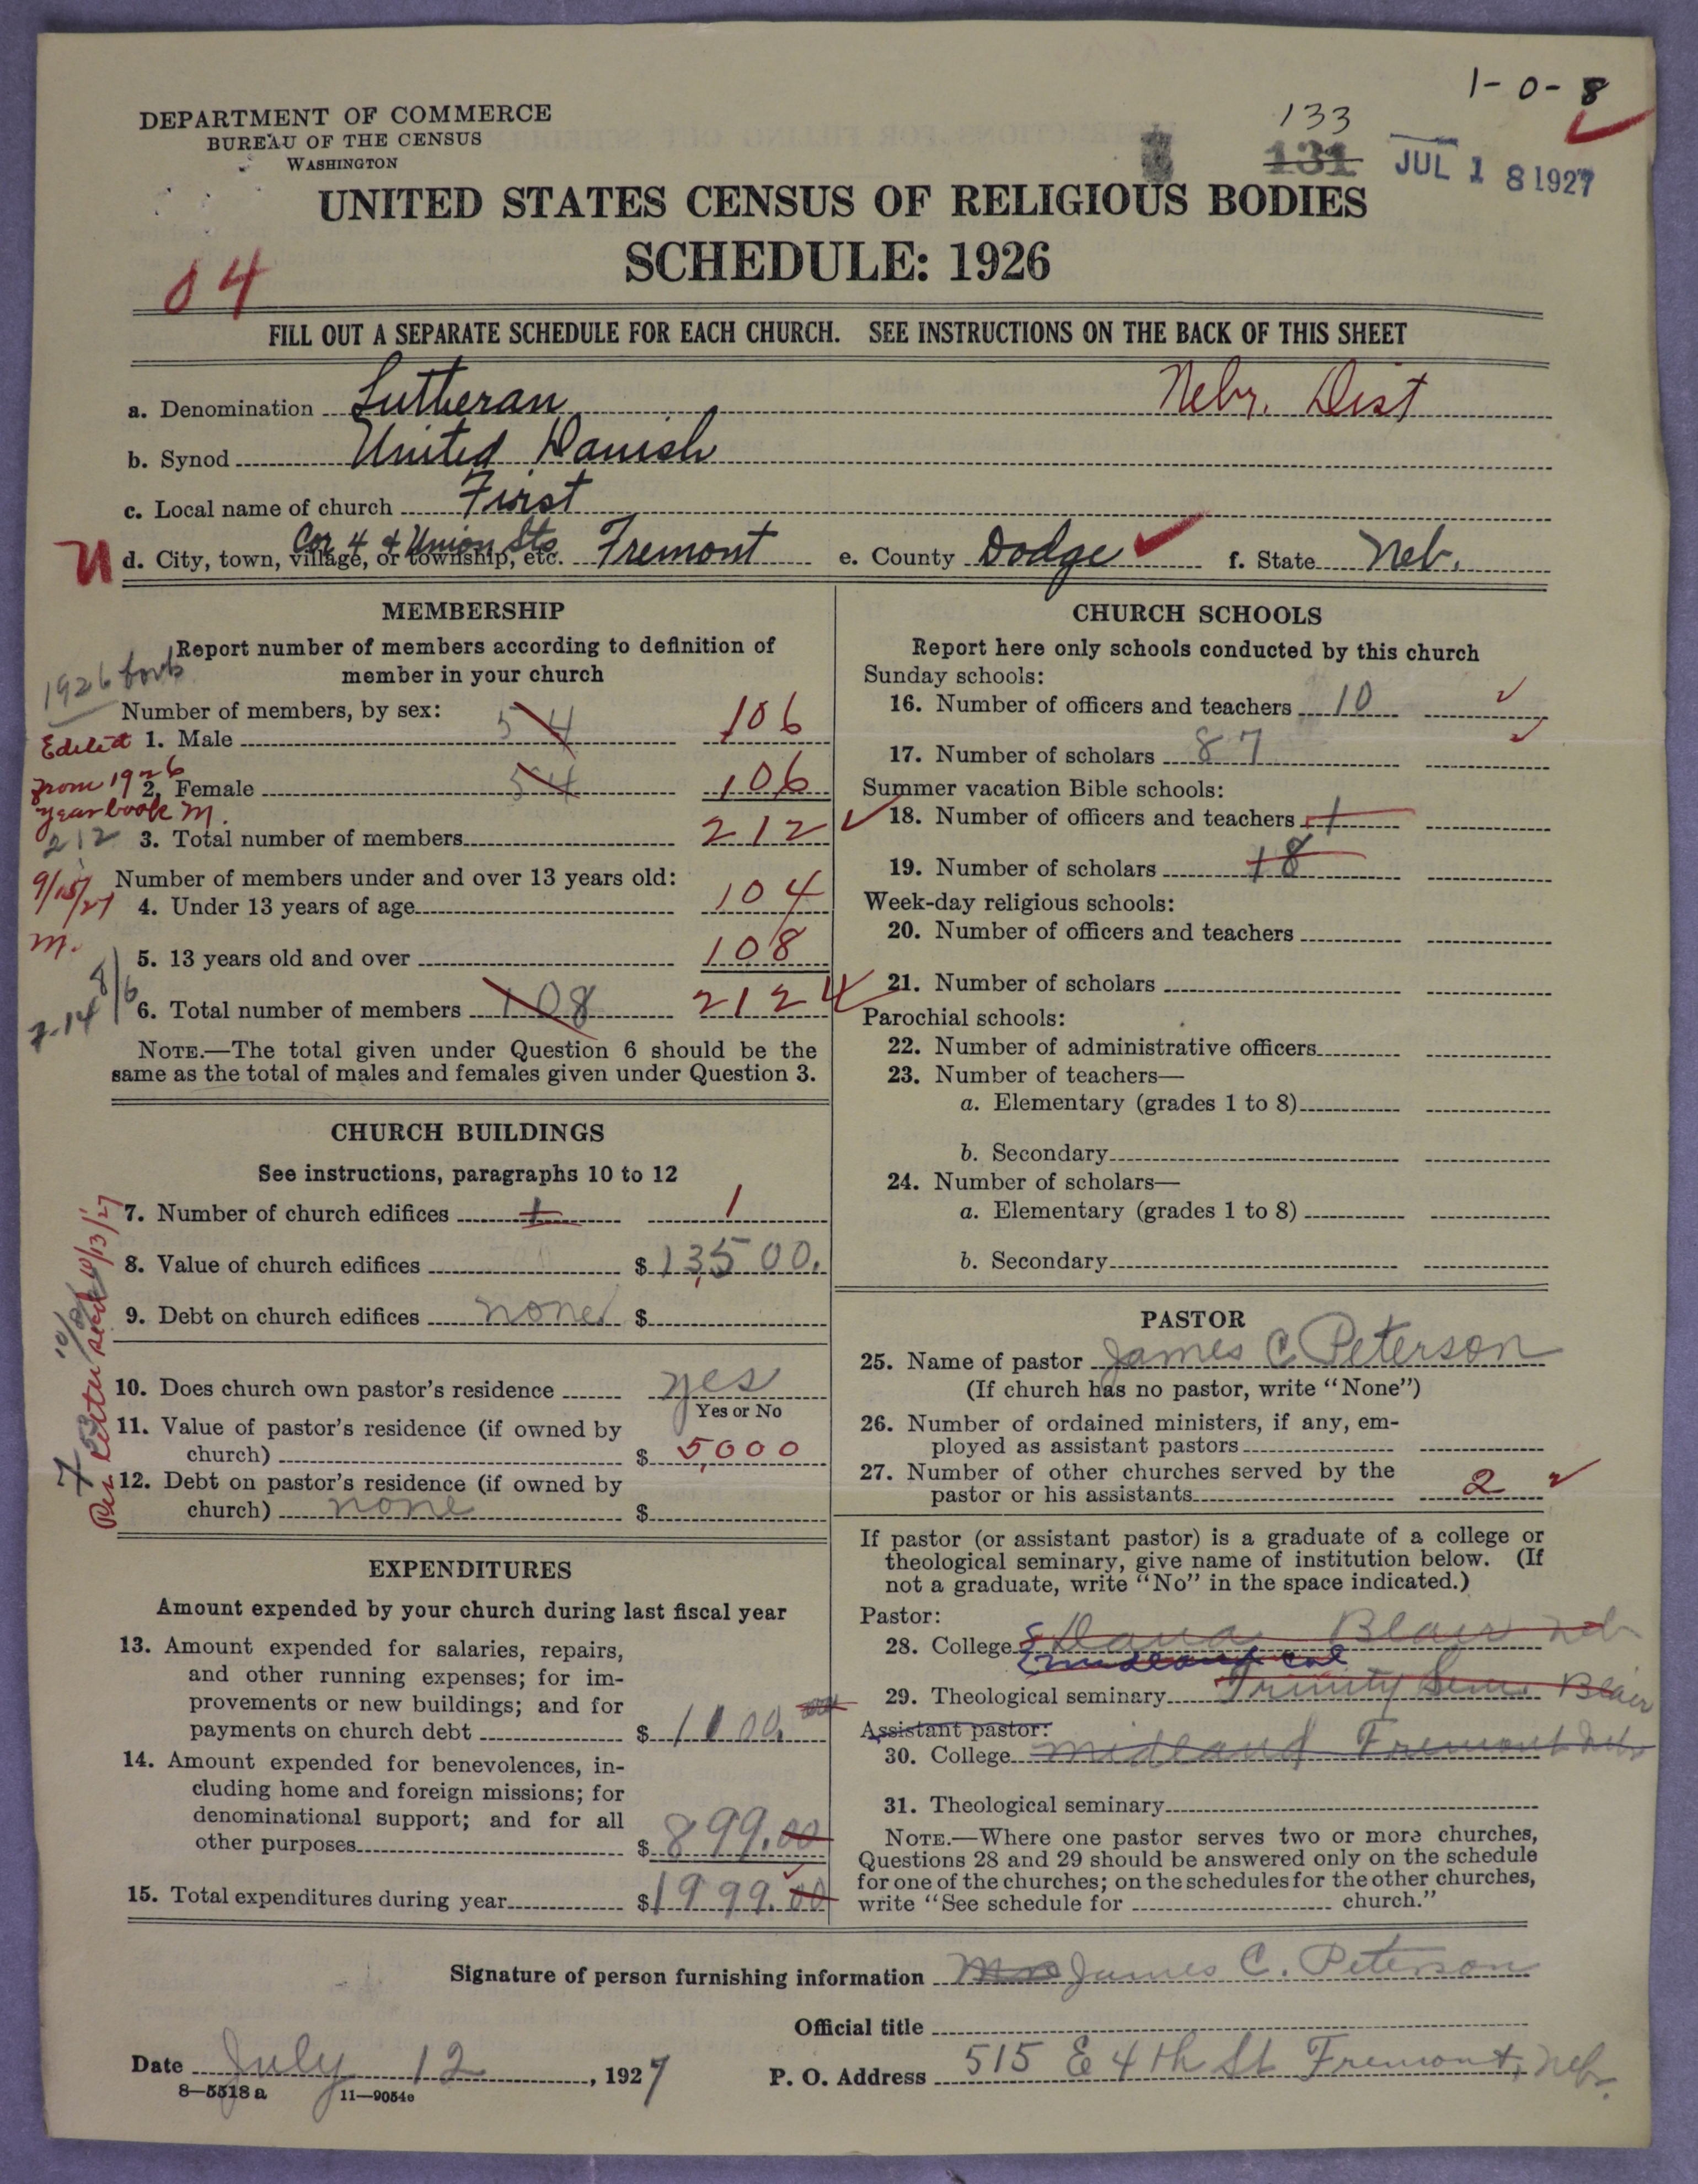 1-0-8
133
131
JUL 18 1927
DEPARTMENT OF COMMERCE
BUREAU OF THE CENSUS
WASHINGTON
UNITED STATES CENSUS OF RELIGIOUS BODIES
SCHEDULE: 1926
04
FILL OUT A SEPARATE SCHEDULE FOR EACH CHURCH. SEE INSTRUCTIONS ON THE BACK OF THIS SHEET
a. Denomination Lutheran Nebr. Dist
b. Synod United Danish
c. Local name of church First
Cor 4 & Union Sts
U d. City, town, village, or township, etc. Fremont e. County Dodge f. State Neb.
MEMBERSHIP
Report number of members according to definition of
member in your church
1926
Number of members, by sex:
Edited 1. Male 54 106
from 1926 2. Female 54 106
yearbook M.
212 3. Total number of members 212
Number of members under and over 13 years old:
9/15/27 4. Under 13 years of age 104
M. 5. 13 years old and over 108
6. Total number of members 108 212
NOTE.—The total given under Question 6 should be the
same as the total of males and females given under Question 3.
CHURCH BUILDINGS
See instructions, paragraphs 10 to 12
7. Number of church edifices 1 1
8. Value of church edifices $ 13,500.
9. Debt on church edifices none $
10. Does church own pastor's residence yes
Yes or No
11. Value of pastor's residence (if owned by
church) $ 5,000
12. Debt on pastor's residence (if owned by
church) none $
EXPENDITURES
Amount expended by your church during last fiscal year
13. Amount expended for salaries, repairs,
and other running expenses; for im-
provements or new buildings; and for
payments on church debt $ 1100.
14. Amount expended for benevolences, in-
cluding home and foreign missions; for
denominational support; and for all
other purposes $ 899.00
15. Total expenditures during year $ 1999.00
CHURCH SCHOOLS
Report here only schools conducted by this church
Sunday schools:
16. Number of officers and teachers 10
17. Number of scholars 87
Summer vacation Bible schools:
18. Number of officers and teachers 1
19. Number of scholars 18
Week-day religious schools:
20. Number of officers and teachers
21. Number of scholars
Parochial schools:
22. Number of administrative officers
23. Number of teachers—
a. Elementary (grades 1 to 8)
b. Secondary
24. Number of scholars—
a. Elementary (grades 1 to 8)
b. Secondary
PASTOR
25. Name of pastor James C Peterson
(If church has no pastor, write "None")
26. Number of ordained ministers, if any, em-
ployed as assistant pastors
27. Number of other churches served by the
pastor or his assistants 2
If pastor (or assistant pastor) is a graduate of a college or
theological seminary, give name of institution below. (If
not a graduate, write "No" in the space indicated.)
Pastor:
28. College Dana Blair Neb
Midland Col
29. Theological seminary Trinity Sem. Blair
Assistant pastor:
30. College Midland Fremont Neb
31. Theological seminary
NOTE.—Where one pastor serves two or more churches,
Questions 28 and 29 should be answered only on the schedule
for one of the churches; on the schedules for the other churches,
write "See schedule for church."
Signature of person furnishing information Mrs James C. Peterson
Official title
Date July 12, 1927 P. O. Address 515 E 4th St Fremont, Nebr.
8—5518 a 11—9054e